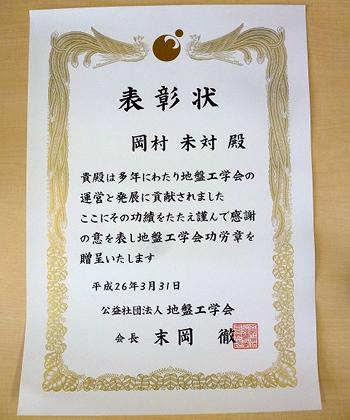 表彰状
岡村 未対 殿
貴殿は多年にわたり地盤工学会の
運営と発展に貢献されました
ここにその功績をたたえ謹んで感謝
の意を表し地盤工学会功労章を
贈呈いたします
平成26年3月31日
公益社団法人 地盤工学会
会長 末岡 徹